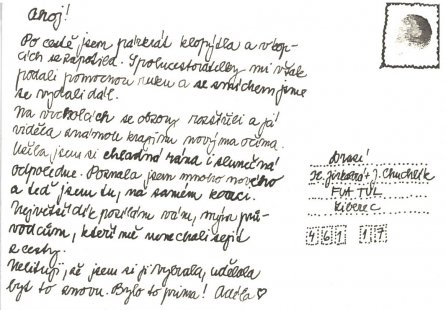 Ahoj!
Po cestě jsem párkrát klopýtla a v kop-
cích se zapotřed. Spolucestovatelky mi však
podali pomocnou ruku a se smíchem jsme
se vydali dál.
Na vrcholcích se obzory rozšířili a já
viděla známou krajinu novýma očima.
Užila jsem si chladná rána i slunečná
odpoledne. Poznala jsem mnoho nového
a teď jsem tu, na samém konci.
Největší dík posílám vám, mým prů-
vodcům, kteří mě nenechali sejít
z cesty.
Nelituji, že jsem si ji vybrala, udělala
bych to znovu. Bylo to prima! Adéla ♡
Drazí
J. Chuchlík
FUA TUL
Liberec
461 17